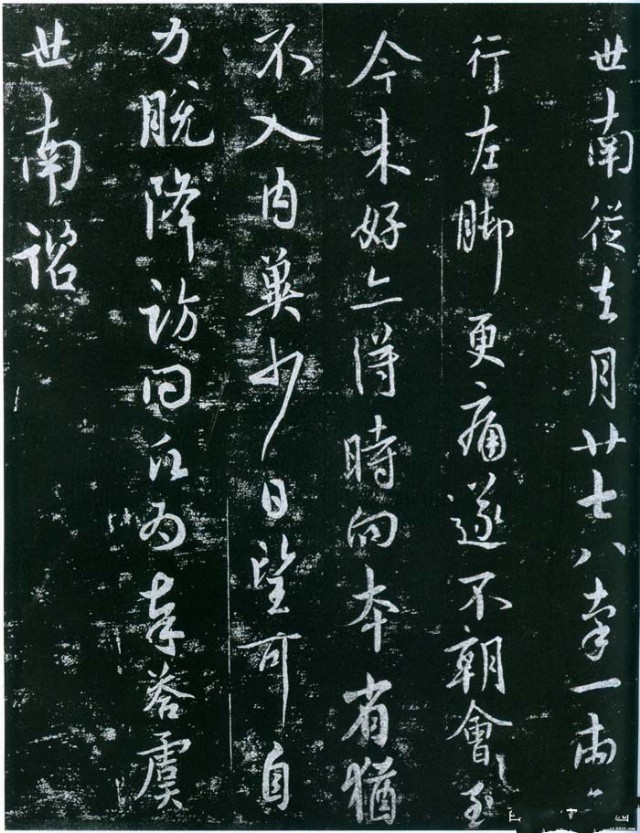 世南從去月廿七八率一兩
行左脚更痛遂不朝會至
今未好亦得時向本省猶
不入內冀少日望可自
力脫降訪問願為奉答虞
世南諮